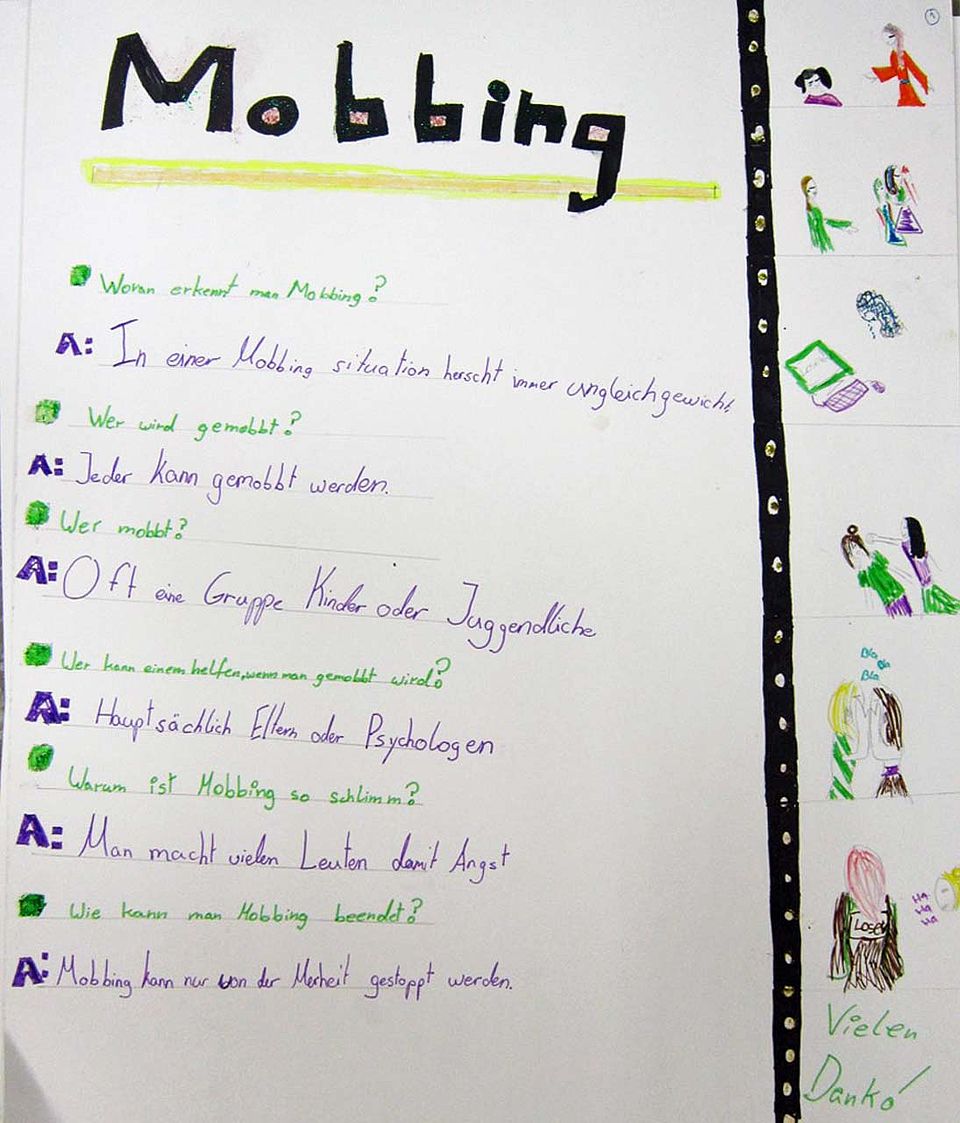 Mobbing
Woran erkennt man Mobbing?
A: In einer Mobbing situation herscht immer ungleichgewicht
Wer wird gemobbt?
A: Jeder kann gemobbt werden.
Wer mobbt?
A: Oft eine Gruppe Kinder oder Juggendliche
Wer kann einem helfen, wenn man gemobbt wird?
A: Hauptsächlich Eltern oder Psychologen
Warum ist Mobbing so schlimm?
A: Man macht vielen Leuten damit Angst
Wie kann man Mobbing beendet?
A: Mobbing kann nur von der Merheit gestoppt werden.
1
Bla
Bla
Bla
HA
HA
HA
Loser
Vielen
Danke!